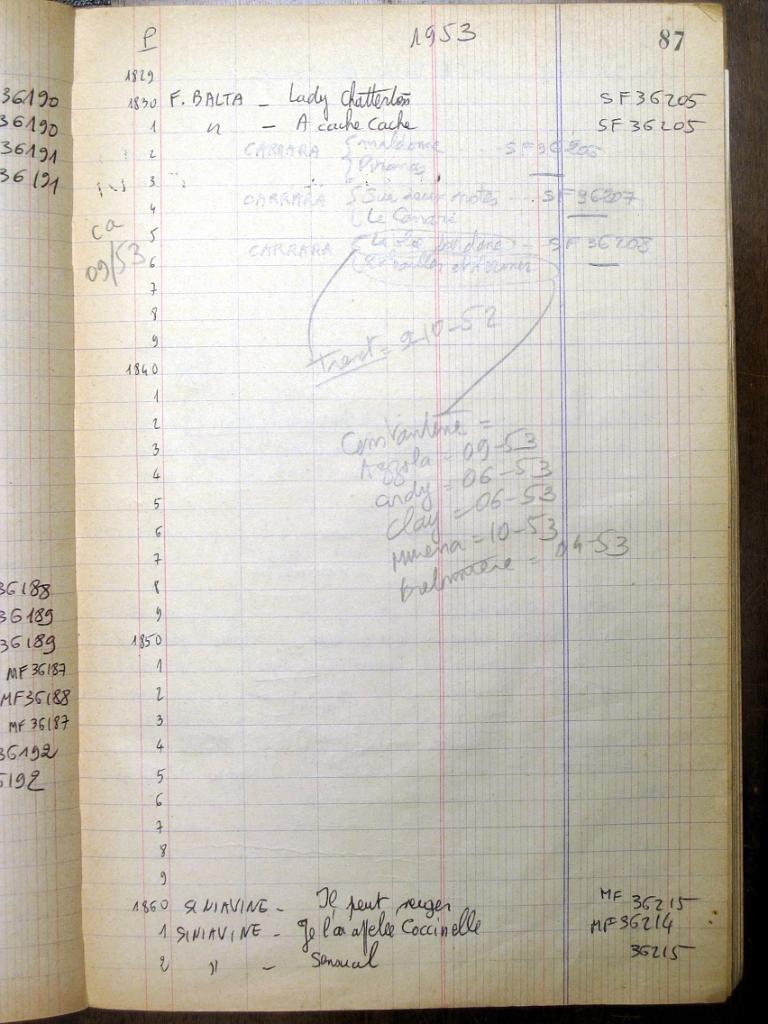 36190
36190
36191
36191
36188
36189
36189
MF 36187
MF 36188
MF 36187
36192
6192
P 1953 87
1829
1830 F. BALTA _ Lady Chatterley SF 36205
1 " - A cache cache SF 36205
2 CARRARA SF 36205
3
4 CARRARA Sur deux notes ... SF 36207
Le Canari
5 CARRARA SF 36208
ca
09/53
6
7
8
9
Trent = 9-10-52
1840
1
2
3
4
5
6
7
8
9
Constantine =
Azzola = 09-53
Cardy = 06-53
Clay = 06-53
Murena = 10-53
= 04-53
1850
1
2
3
4
5
6
7
8
9
1860 SINIAVINE - Il peut neiger MF 36215
1 SINIAVINE - Je l'ai appelée Coccinelle MF 36214
2 " - Sensual 36215